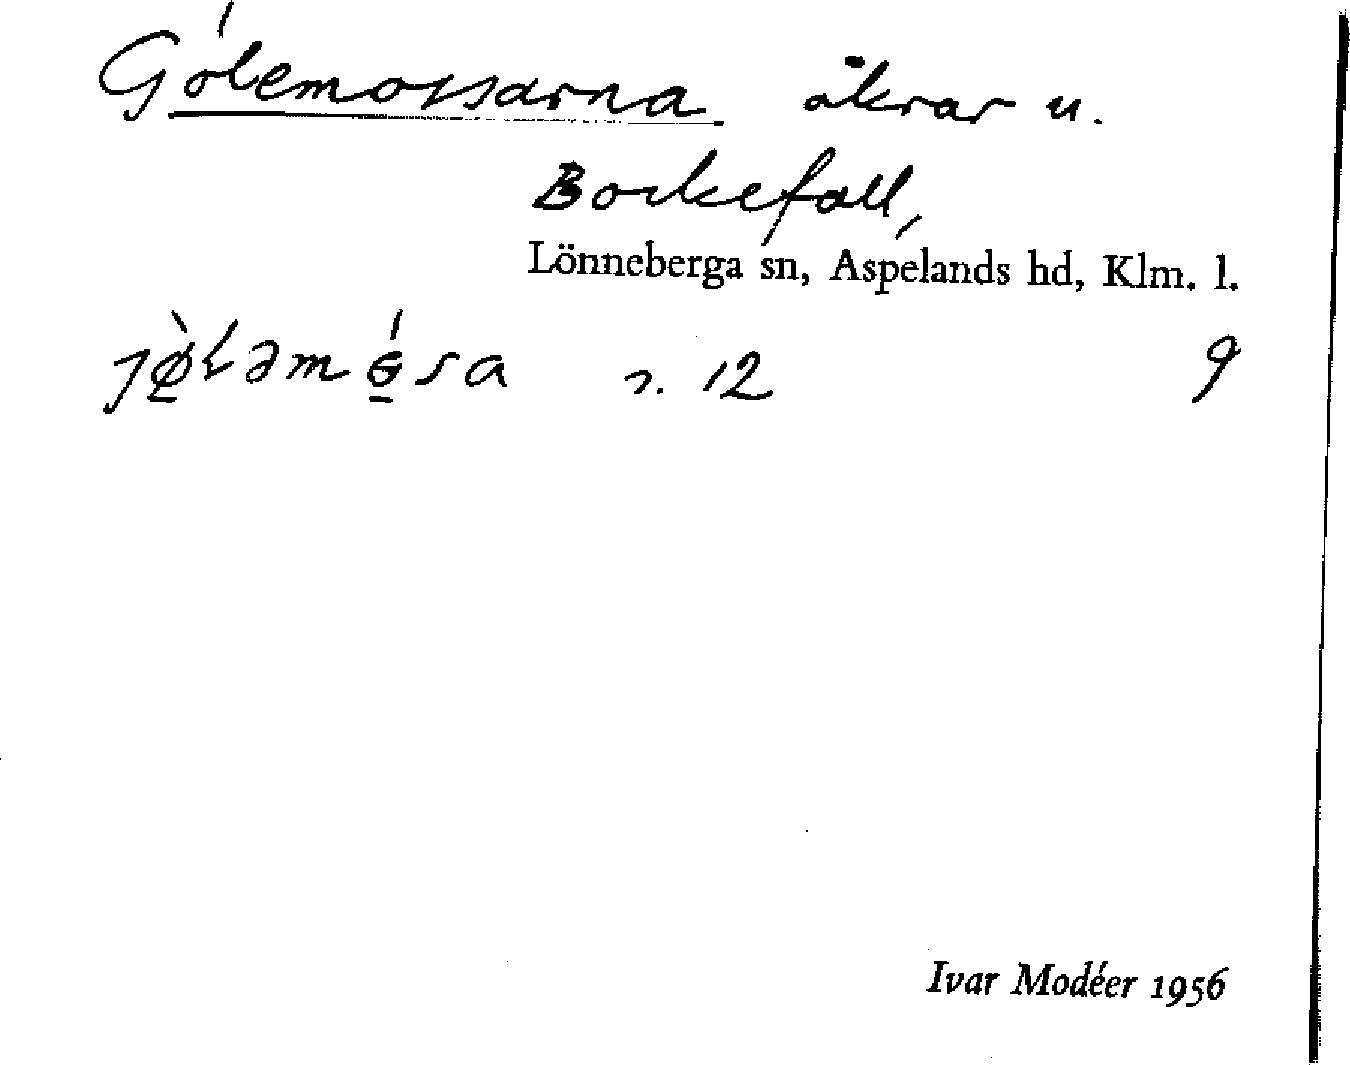 Gólemossarna åkrar u.
Bockefall,
Lönneberga sn, Aspelands hd, Klm. l.
s. 12 9
Ivar Modéer 1956